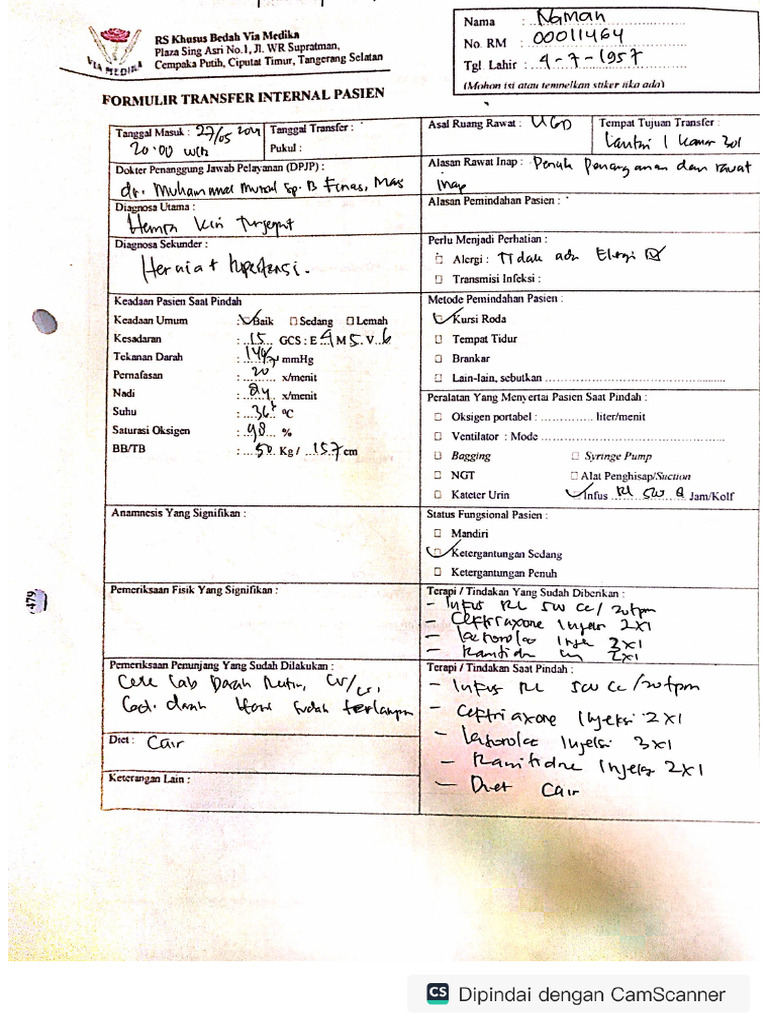 VIA MEDIKA
RS Khusus Bedah Via Medika
Plaza Sing Asri No.1, Jl. WR Supratman,
Cempaka Putih, Ciputat Timur, Tangerang Selatan
Nama : Naman
No. RM : 00011464
Tgl. Lahir : 4-7-1957
(Mohon isi atau tempelkan stiker jika ada)
FORMULIR TRANSFER INTERNAL PASIEN
Tanggal Masuk : 27/05
20.00 WIB
Tanggal Transfer :
Pukul :
Asal Ruang Rawat : UGD
Tempat Tujuan Transfer :
Lantai 1 Kamar 301
Dokter Penanggung Jawab Pelayanan (DPJP) :
dr. Muhammad Sp. B
Alasan Rawat Inap : Penanganan dan rawat
inap
Diagnosa Utama :
Hernia
Alasan Pemindahan Pasien :
Diagnosa Sekunder :
Hernia + hipertensi.
Perlu Menjadi Perhatian :
Alergi : Tidak ada Elergi
Transmisi Infeksi :
Keadaan Pasien Saat Pindah
Keadaan Umum : Baik Sedang Lemah
Kesadaran : 15 GCS : E 4 M 5 V 6
Tekanan Darah : mmHg
Pernafasan : 20 x/menit
Nadi : 84 x/menit
Suhu : 36 °C
Saturasi Oksigen : 98 %
BB/TB : 50 Kg / 157 cm
Metode Pemindahan Pasien :
Kursi Roda
Tempat Tidur
Brankar
Lain-lain, sebutkan
Peralatan Yang Menyertai Pasien Saat Pindah :
Oksigen portabel : liter/menit
Ventilator : Mode
Bagging Syringe Pump
NGT Alat Penghisap/Suction
Kateter Urin Infus RL 500 8 Jam/Kolf
Anamnesis Yang Signifikan :
Status Fungsional Pasien :
Mandiri
Ketergantungan Sedang
Ketergantungan Penuh
Pemeriksaan Fisik Yang Signifikan :
Terapi / Tindakan Yang Sudah Diberikan :
- Infus RL 500 cc/20tpm
- Ceftriaxone Injeksi 2x1
- ketorolac Injek
- Ranitidin 2x1
Pemeriksaan Penunjang Yang Sudah Dilakukan :
Cek Lab Darah Rutin,
Gol. darah sudah terlampir
Terapi / Tindakan Saat Pindah :
- Infus RL 500 cc/20tpm
- Ceftriaxone Injeksi 2x1
- ketorolac Injeksi 3x1
- Ranitidine Injeksi 2x1
- Diet Cair
Diet : Cair
Keterangan Lain :
479
CS Dipindai dengan CamScanner